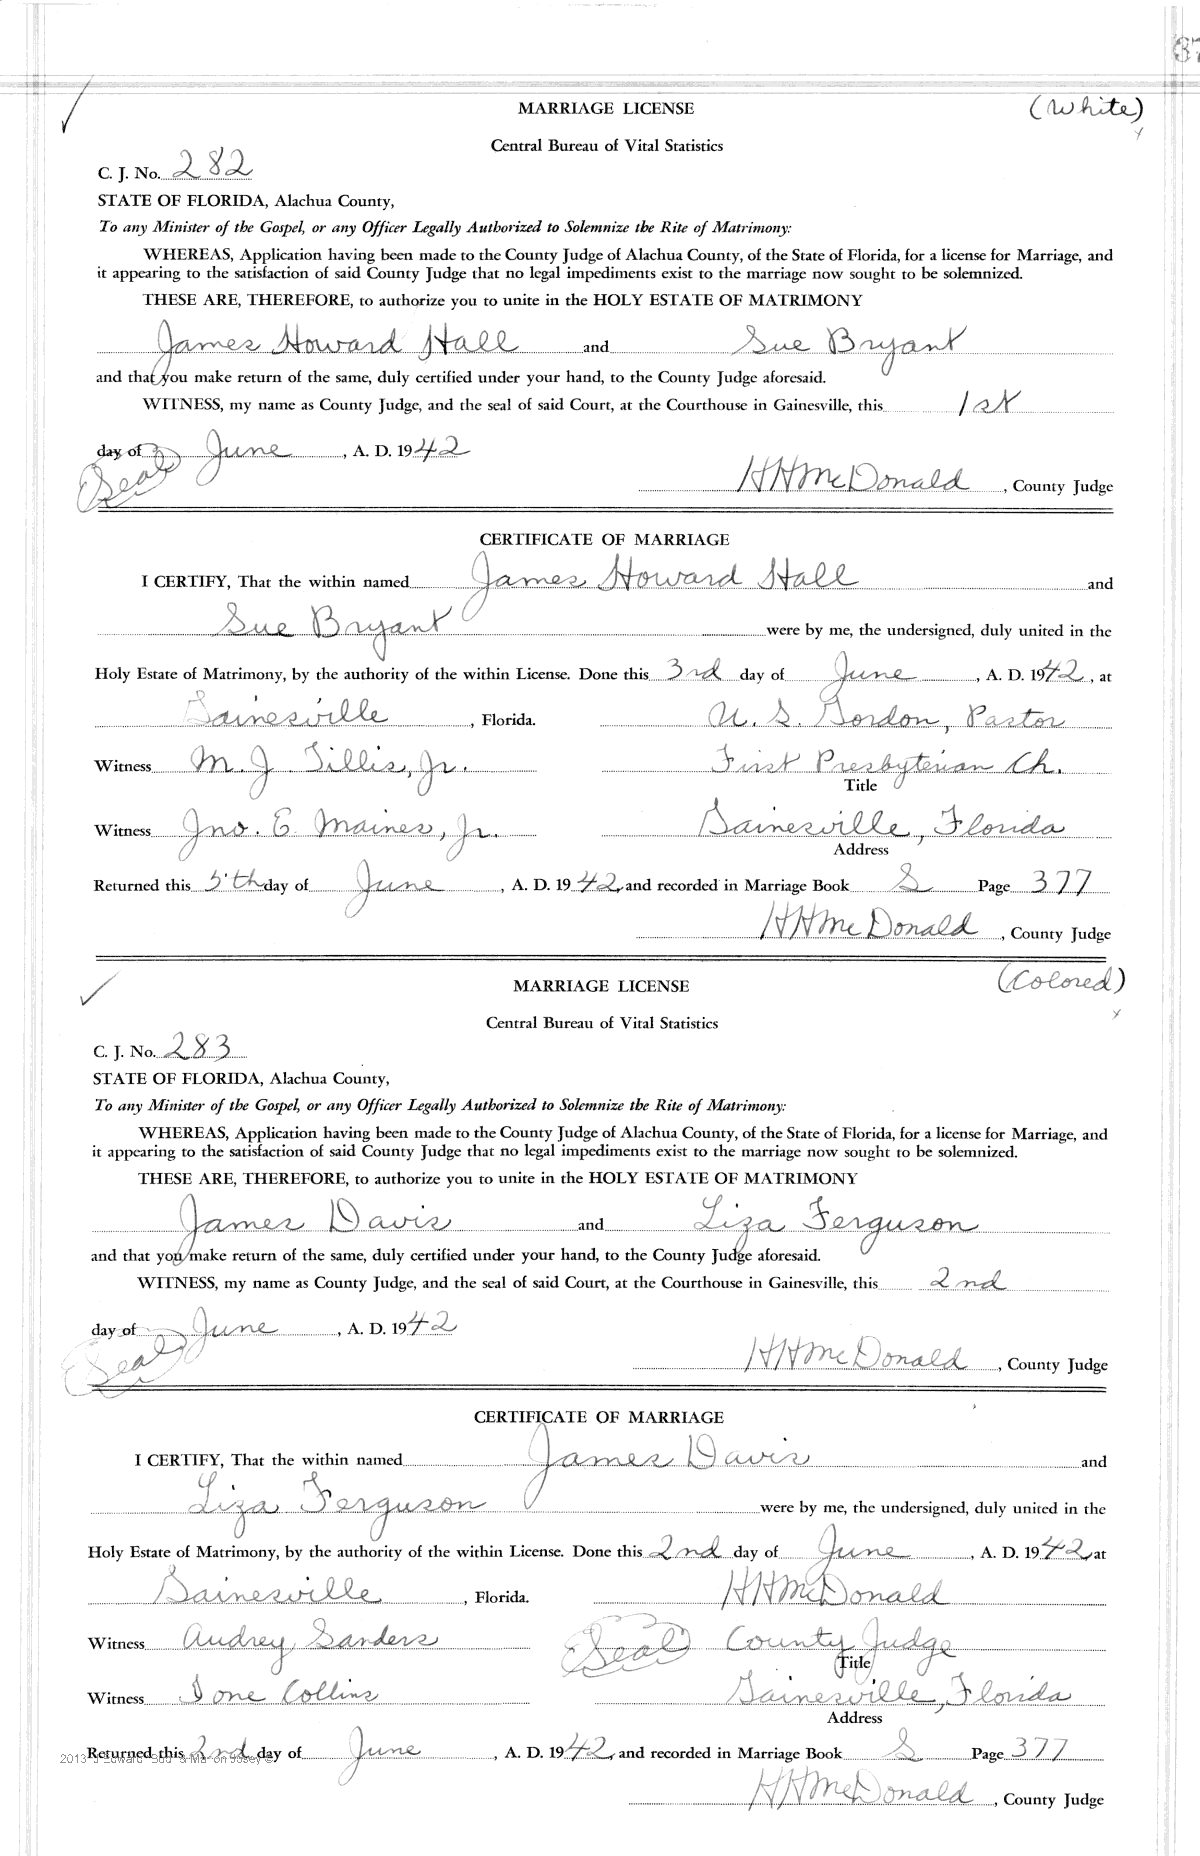 37
MARRIAGE LICENSE (White)
Central Bureau of Vital Statistics
C. J. No. 282
STATE OF FLORIDA, Alachua County,
To any Minister of the Gospel, or any Officer Legally Authorized to Solemnize the Rite of Matrimony:
WHEREAS, Application having been made to the County Judge of Alachua County, of the State of Florida, for a license for Marriage, and
it appearing to the satisfaction of said County Judge that no legal impediments exist to the marriage now sought to be solemnized.
THESE ARE, THEREFORE, to authorize you to unite in the HOLY ESTATE OF MATRIMONY
James Howard Hall and Sue Bryant
and that you make return of the same, duly certified under your hand, to the County Judge aforesaid.
WITNESS, my name as County Judge, and the seal of said Court, at the Courthouse in Gainesville, this 1st
day of June, A. D. 1942
Seal
HHMcDonald, County Judge
CERTIFICATE OF MARRIAGE
I CERTIFY, That the within named James Howard Hall and
Sue Bryant were by me, the undersigned, duly united in the
Holy Estate of Matrimony, by the authority of the within License. Done this 3rd day of June, A. D. 1942, at
Gainesville, Florida. U. S. Gordon, Pastor
Witness M. J. Tillis, Jr. First Presbyterian Ch.
Title
Witness Jno. E. Maines, Jr. Gainesville, Florida
Address
Returned this 5th day of June, A. D. 1942, and recorded in Marriage Book S Page 377
HHMcDonald, County Judge
MARRIAGE LICENSE (Colored)
Central Bureau of Vital Statistics
C. J. No. 283
STATE OF FLORIDA, Alachua County,
To any Minister of the Gospel, or any Officer Legally Authorized to Solemnize the Rite of Matrimony:
WHEREAS, Application having been made to the County Judge of Alachua County, of the State of Florida, for a license for Marriage, and
it appearing to the satisfaction of said County Judge that no legal impediments exist to the marriage now sought to be solemnized.
THESE ARE, THEREFORE, to authorize you to unite in the HOLY ESTATE OF MATRIMONY
James Davis and Liza Ferguson
and that you make return of the same, duly certified under your hand, to the County Judge aforesaid.
WITNESS, my name as County Judge, and the seal of said Court, at the Courthouse in Gainesville, this 2nd
day of June, A. D. 1942
Seal
HHMcDonald, County Judge
CERTIFICATE OF MARRIAGE
I CERTIFY, That the within named James Davis and
Liza Ferguson were by me, the undersigned, duly united in the
Holy Estate of Matrimony, by the authority of the within License. Done this 2nd day of June, A. D. 1942, at
Gainesville, Florida. HHMcDonald
Witness Audrey Sanders Seal County Judge
Title
Witness Ione Collins Gainesville, Florida
Address
Returned this 2nd day of June, A. D. 1942, and recorded in Marriage Book S Page 377
HHMcDonald, County Judge